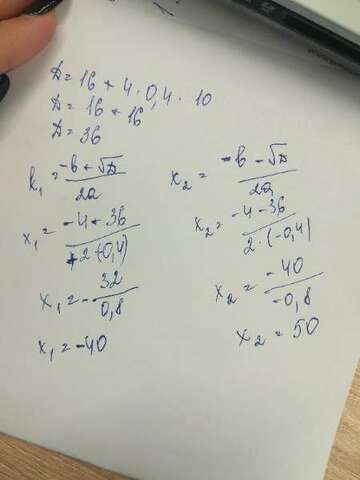 D = 16 + 4 · 0,4 · 10
D = 16 + 16
D = 36
x₁ = (-b + √D) / 2a
x₁ = (-4 + 36) / (2·(-0,4))
x₁ = - 32 / 0,8
x₁ = -40
x₂ = (-b - √D) / 2a
x₂ = (-4 - 36) / (2·(-0,4))
x₂ = -40 / -0,8
x₂ = 50